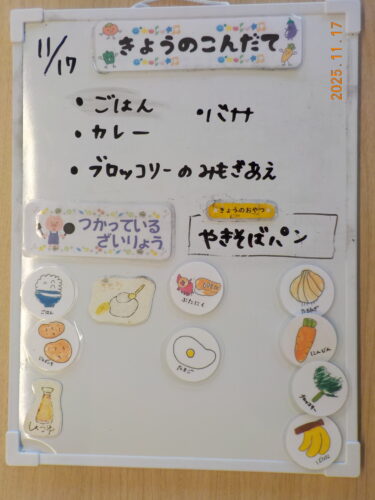 11/17
きょうのこんだて
2025.11.17
・ごはん
・バナナ
・カレー
・ブロッコリーのみもざあえ
つかっている
ざいりょう
きょうのおやつ
やきそばパン
ごはん
ぶたにく
たまねぎ
じゃがいも
たまご
にんじん
ブロッコリー
しょうゆ